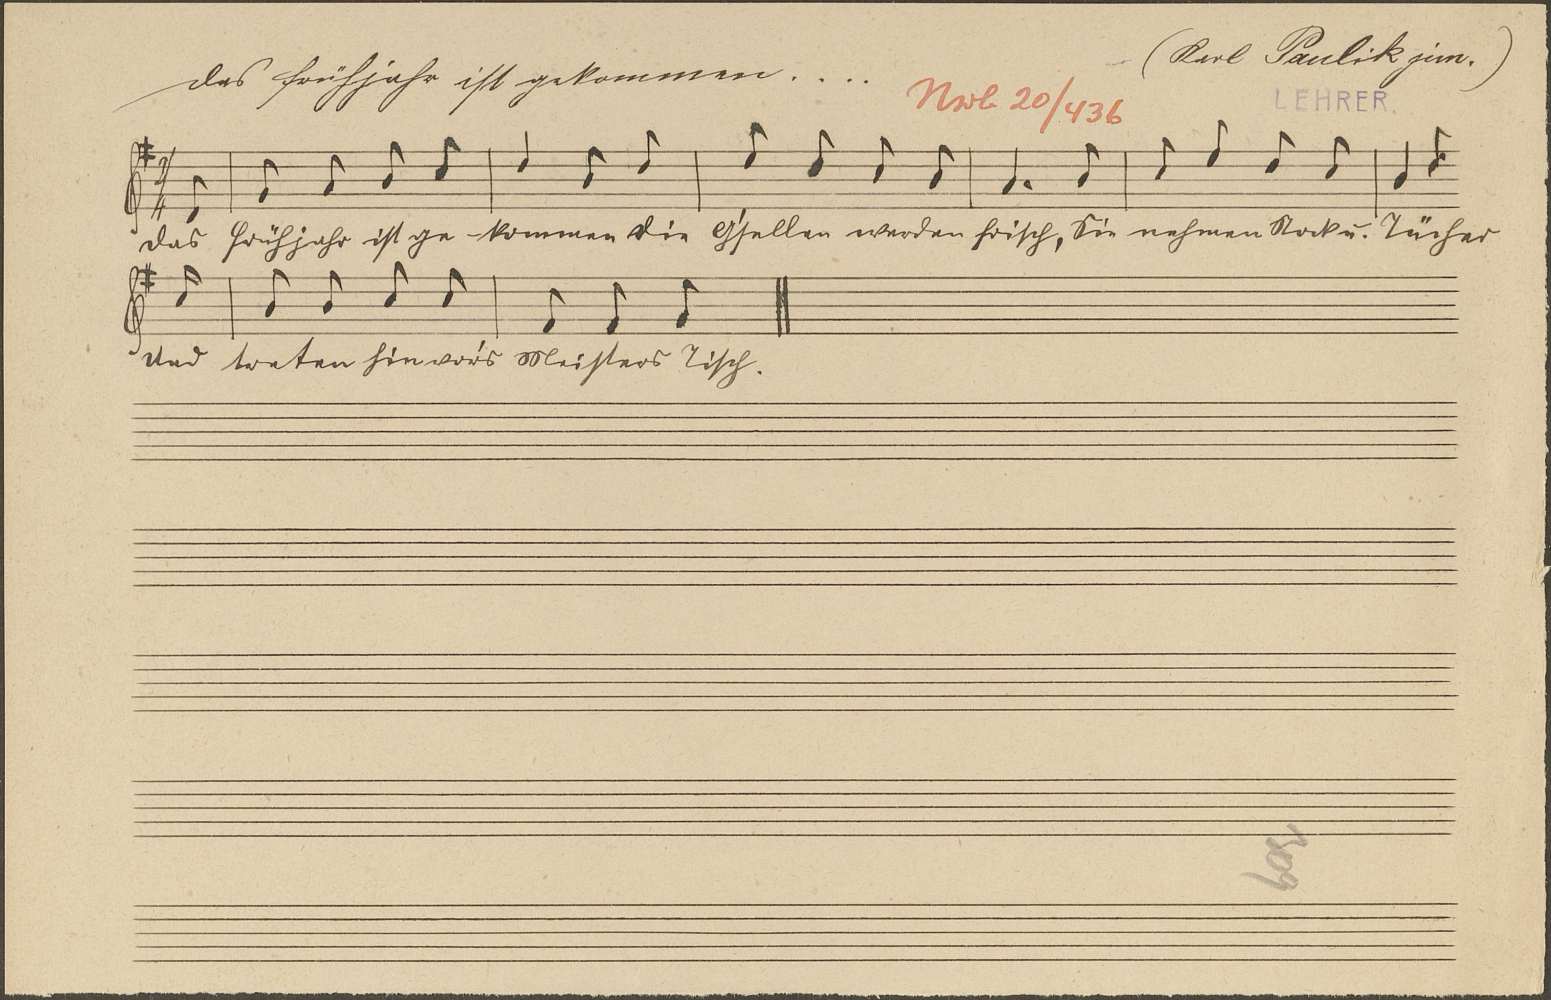 das Frühjahr ist gekommen....
(Karl Paulik jun.)
Nrb 20/436
LEHRER.
2/4
das Frühjahr ist ge-kommen die G'sellen werden frisch, Sie nehmen Stock u. Tücher
und treten hin vor's Meisters Tisch.
509